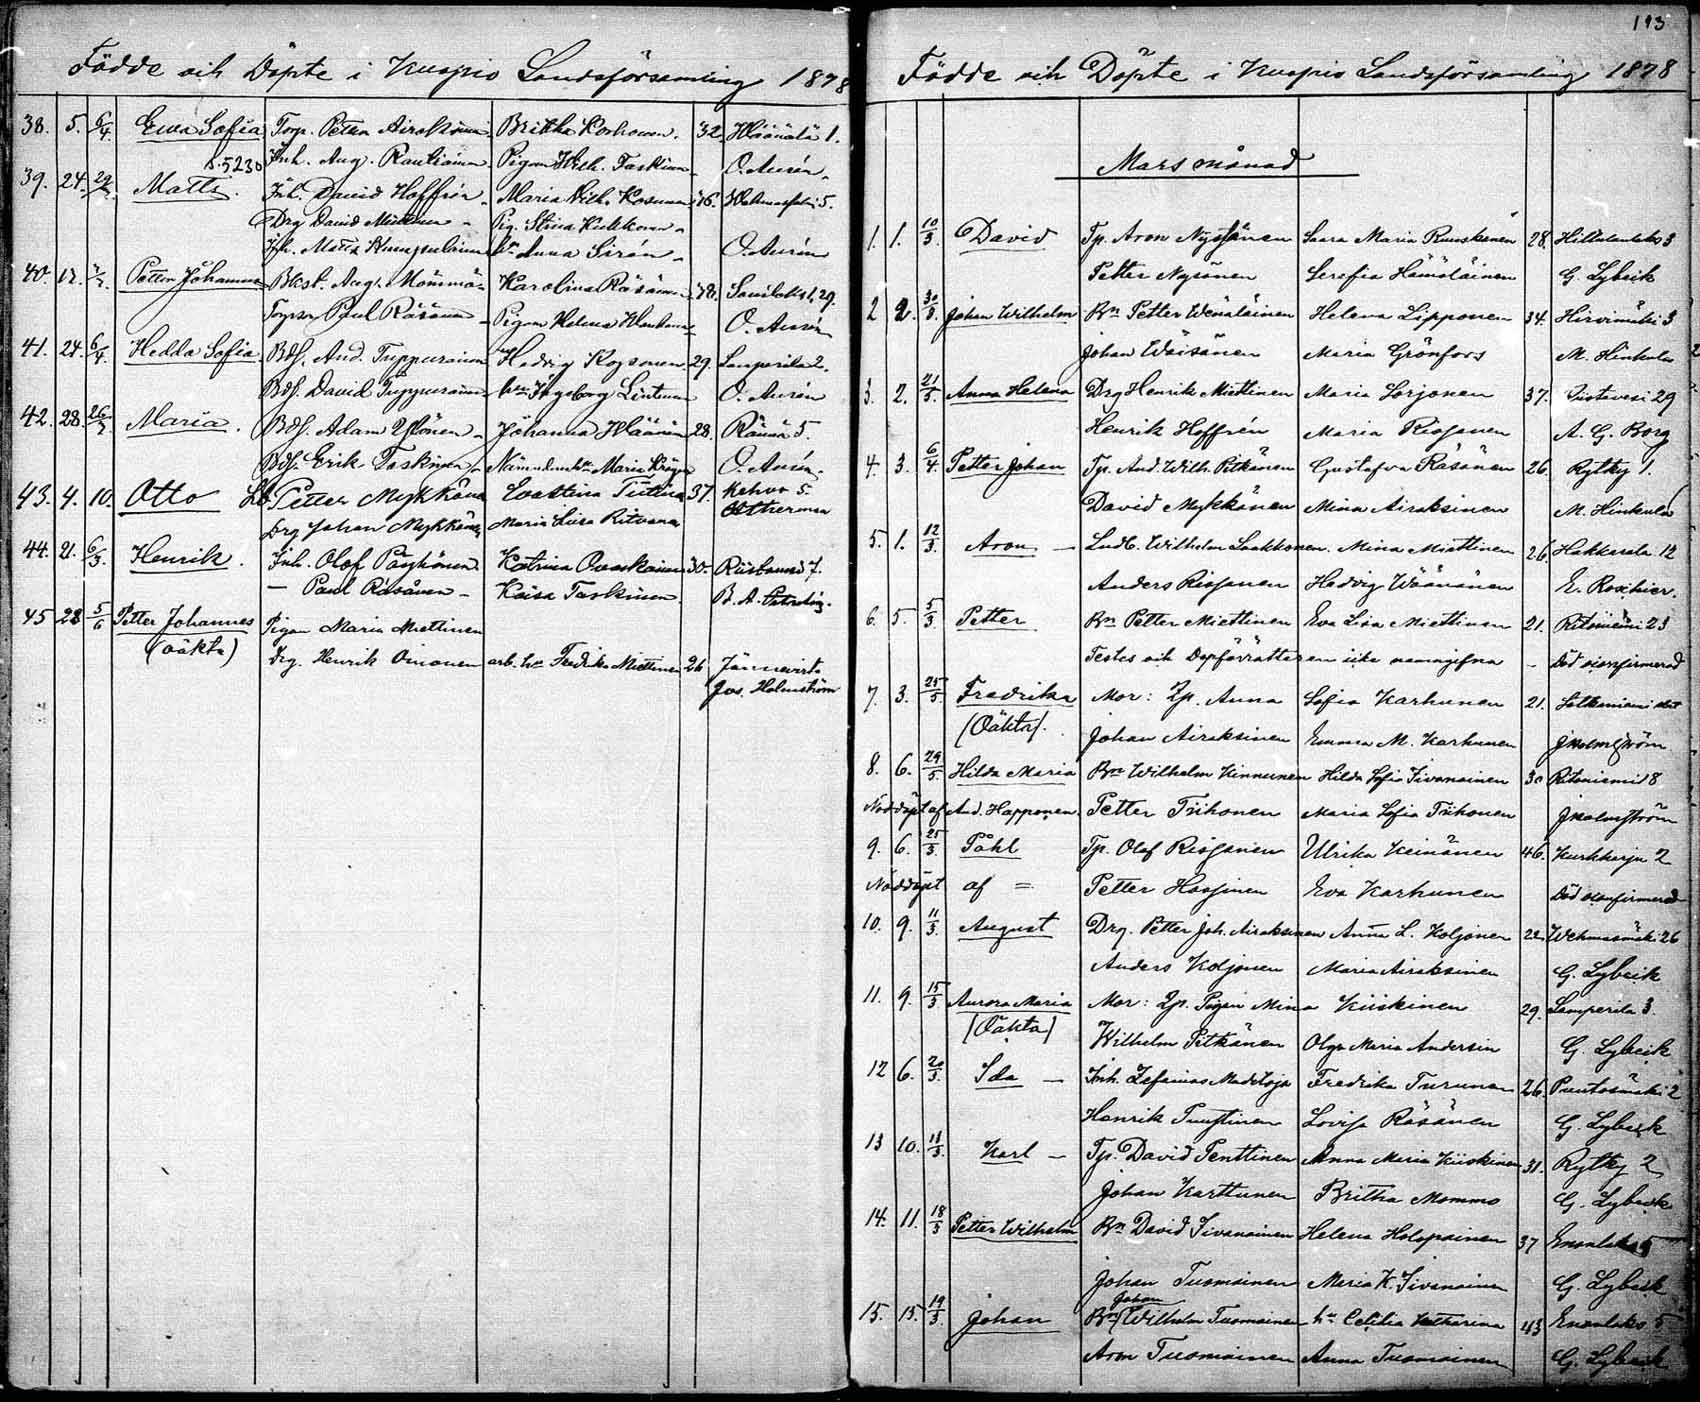 Födde och Döpte i Kuopio Landsförsamling 1878
38. 5. 6/4. Ewa Sofia Torp. Petter Airaksinen Britha Korhonen. 32. Väänälä 1.
Inh. Aug. Rautiainen Pigan Wilh. Taskinen O. Aurén.
S. 5230
39. 24. Matti. Inh. David Hoffrén Maria Wilh. Kosunen 36. 5.
Drg David Miettinen Pig. Stina
Inh. Matts Kumpulainen Anna Sirén O. Aurén
40. 17. Petter Johannes Aug. Mömmö Karolina Räsänen 38. 29.
Paul Räsänen Pigan Helena O. Aurén
41. 24. 6/4. Hedda Sofia. Bdf. And. Tuppurainen Hedvig Koponen 29. Lamperila 2.
Bdf. David Tuppurainen Ingeborg Lintunen O. Aurén
42. 28. Maria. Bdf. Adam Ylönen Johanna Väänänen 28. Räsä 5.
Bdf. Erik Taskinen Maria O. Aurén.
43. 4. 10. Otto Petter Mykkänen Evastina Tiitinen 37. Kehvo 5.
Drg Johan Mykkänen Maria Lovisa Ritvanen
44. 21. 6/3. Henrik. Inh. Olof Pöyhönen Katrina Ovaskainen 30. 7.
— Paul Räsänen Kaisa Taskinen
45 28 5/6 Petter Johannes Pigan Maria Miettinen
(oäkta)
Drg. Henrik Oinonen arb. hu Fredrika Miettinen 26 Jännevirta
Jos. Holmström
193
Födde och Döpte i Kuopio Landsförsamling 1878
Mars månad
1. 1. 10/3. David Tp. Aron Nyyssönen Saara Maria Ruuskanen 28. Hiltulanlaks 3
Petter Nyssönen Serefia Hämäläinen G. Lybeck
2 2. 30/3. Johan Wilhelm Bn Petter Wenäläinen Helena Lipponen 34. Hirvimäki 3
Johan Wäisänen Maria Grönfors M. Hinkula
3. 2. 21/5. Anna Helena Drg Henrik Miettinen Maria Lorjonen 37. Puutosvesi 29
Henrik Hoffrén Maria Rissanen A. G. Borg
4. 3. 6/4. Petter Johan Tp. And. Wilh. Pitkänen Gustafva Räsänen 26. Rytky 1.
David Mykkänen Mina Airaksinen M. Hinkula
5. 1. 12/3. Aron — Ludb. Wilhelm Laakkonen. Mina Miettinen 26. Hakkarala 12
Anders Rissanen Hedvig Väänänen E. Roschier.
6. 5. 5/3. Petter Bn Petter Miettinen Eva Lisa Miettinen 21. Ritoniemi 23
Testes och Dopförrättaren icke namngifna — Död oconfirmerad
7. 3. 25/5. Fredrika Mor: Lp. Anna Sofia Karhunen 21. Lotkuniemi
(Oäkta). Johan Airaksinen Emma M. Karhunen J Holmström
8. 6. 29/5 Hilda Maria Bn Wilhelm Kinnunen Hilda Sofia Iivanainen 30 Ritoniemi 8
Nöddöpt af And. Happonen. Petter Tiihonen Maria Sofia Tiihonen J Holmström
9. 6. 25/3. Påhl Tp. Olof Rissanen Ulrika Keinänen 46. Kurkharju 2
Nöddöpt af = Petter Hassinen Eva Karhunen Död oconfirmerad
10. 9. 11/3. August Drg. Petter Joh. Airaksinen Anna L. Koljonen 22. Wehmasmäki 26
Anders Koljonen Maria Airaksinen G. Lybeck
11. 9. 15/3 Aurora Maria Mor: Lp. Pigan Mina Kiiskinen 29. Lamperila 3.
(Oäkta) Wilhelm Pitkänen Olga Maria Andersin G. Lybeck
12 6. 20/3. Ida — Inh. Zefanias Madetoja Fredrika Turunen 26. Puutosmäki 2
Henrik Puustinen Lovisa Räsänen G. Lybeck
13 10. 11/3. Karl — Tp. David Penttinen Anna Maria Kiiskinen 31. Rytky 2
Johan Karttunen Britha Mommo G. Lybeck
14. 11. 18/3 Petter Wilhelm Bn David Iivanainen Helena Holopainen 37 Enonlaks 5
Johan Tuomainen Maria K. Iivanainen G. Lybeck
15. 15. 19/3. Johan Bn Johan Wilhelm Tuomainen hu Cecilia Katharina 43 Enonlaks 5
Aron Tuomainen Anna Tuomainen G. Lybeck